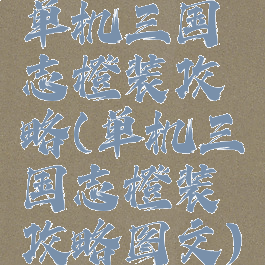 单机三国
志橙装攻
略(单机三
国志橙装
攻略图文)